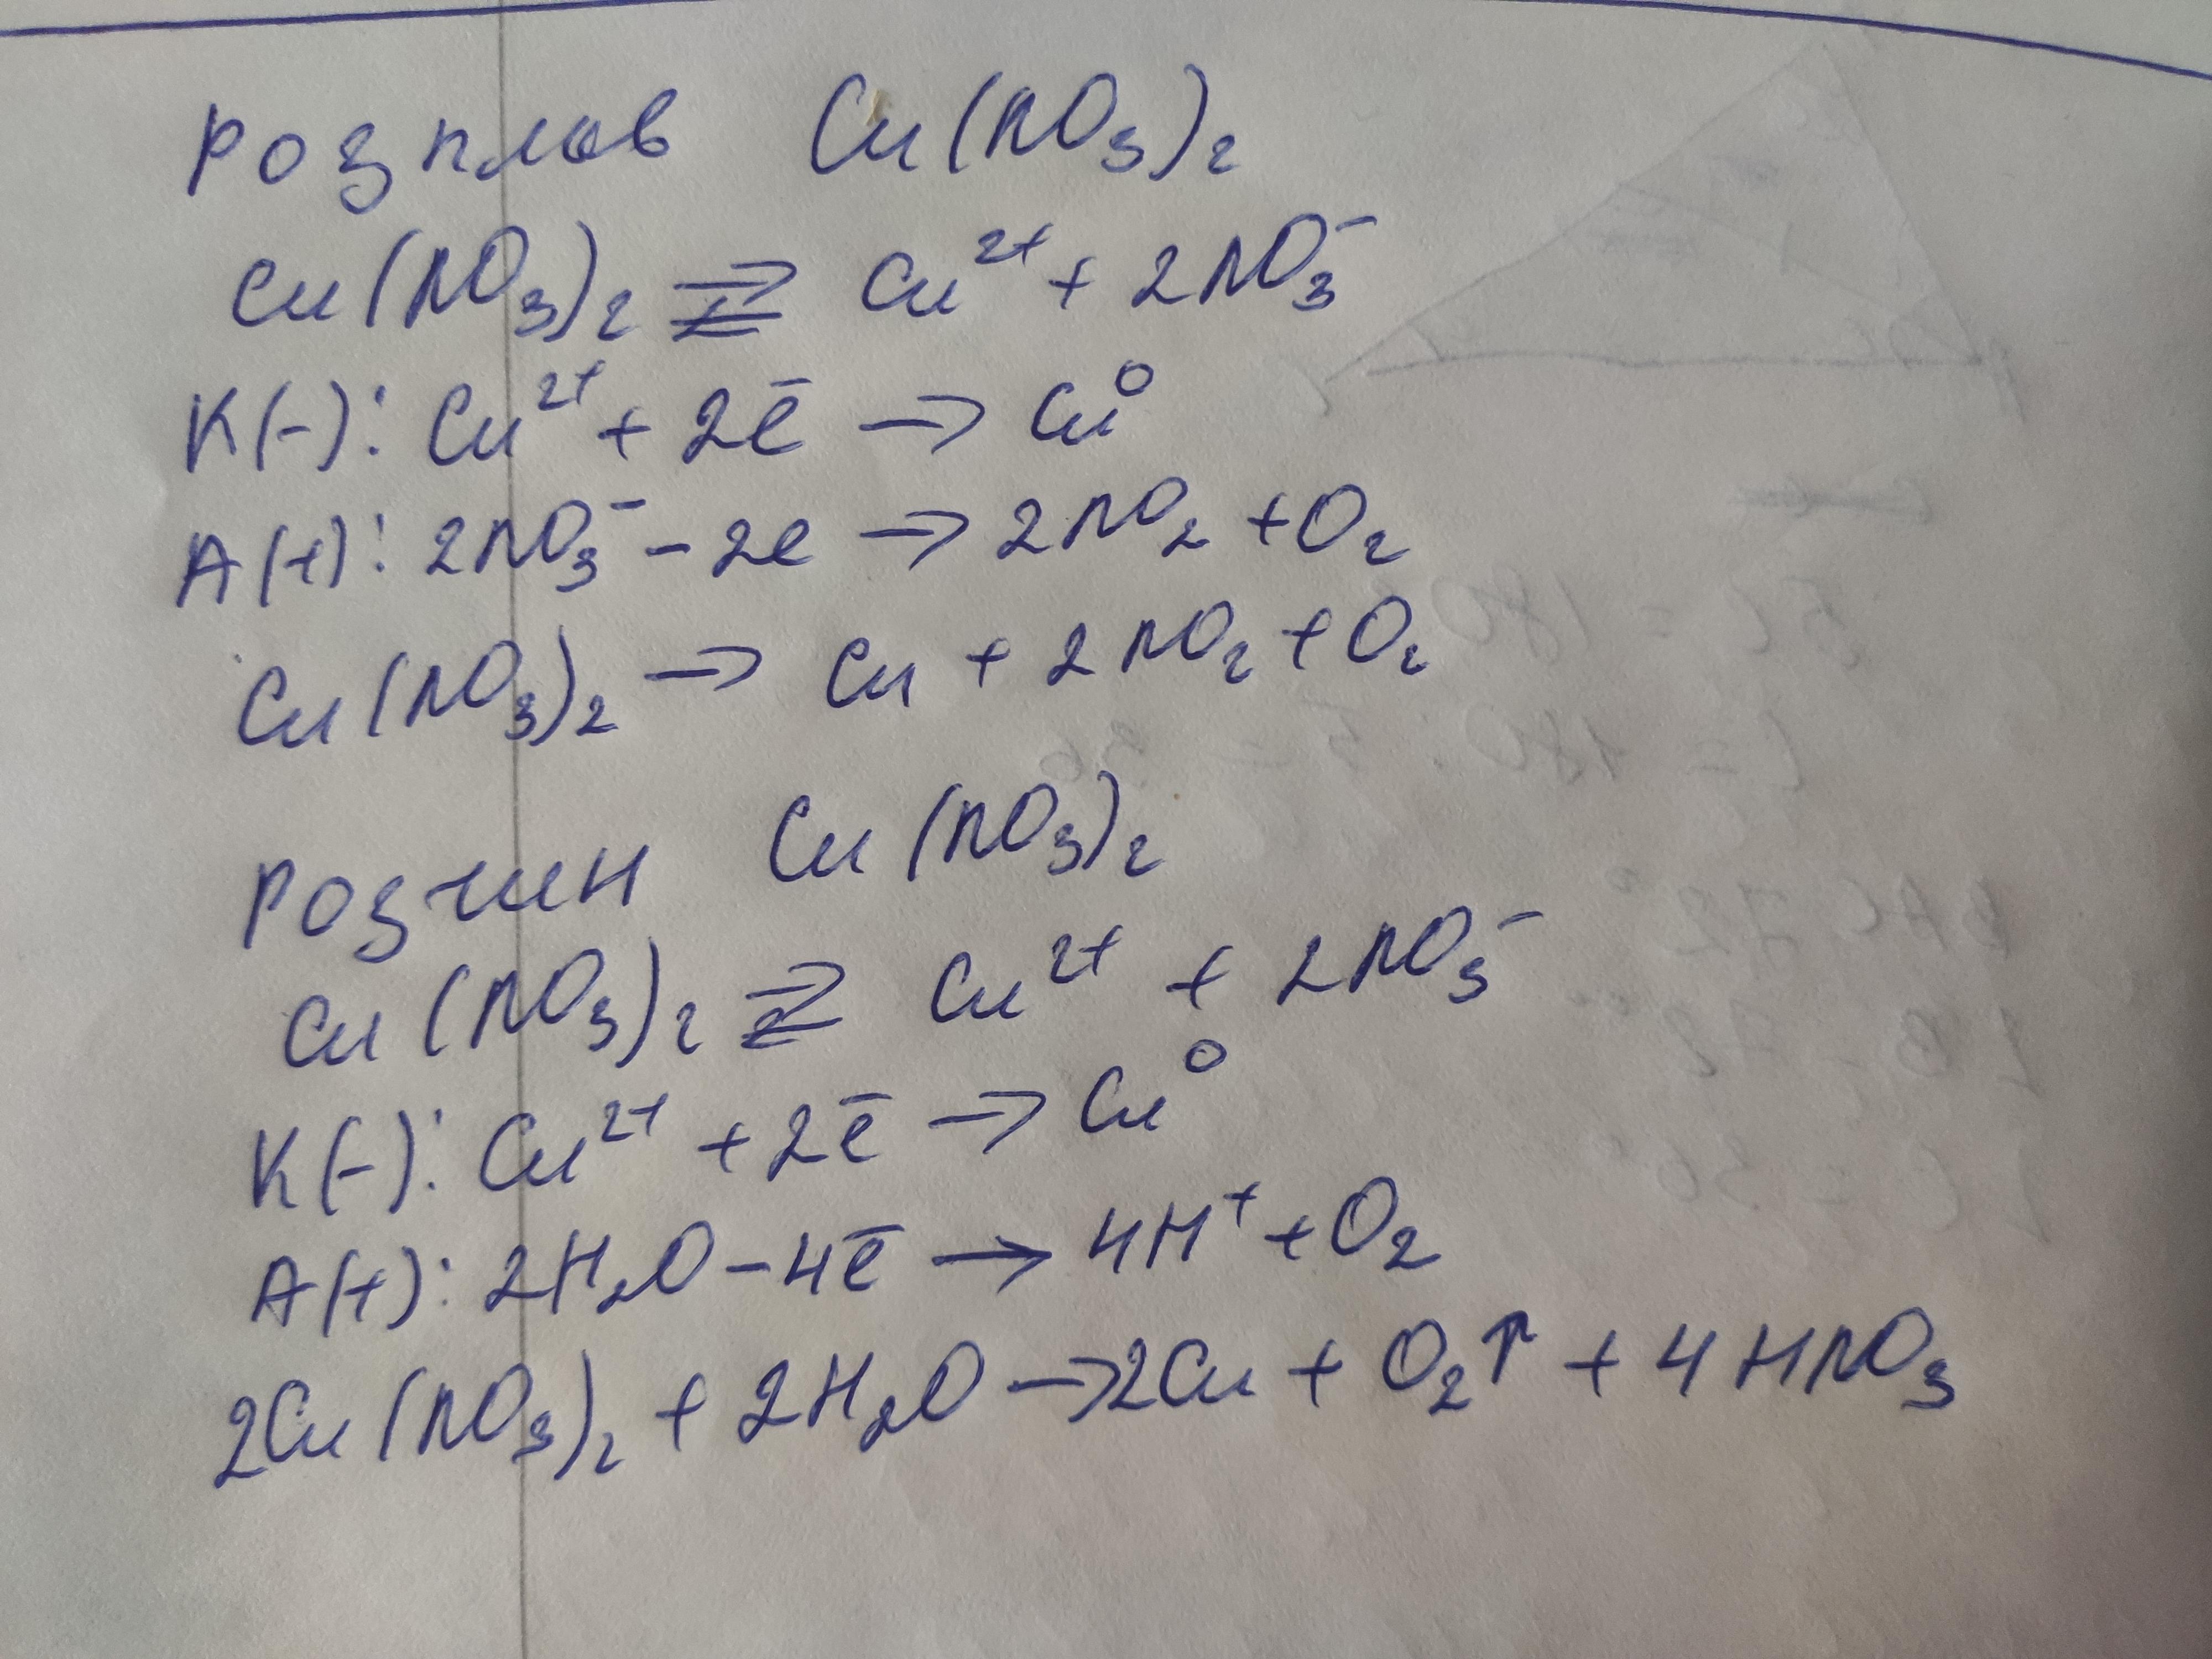 Розплав Cu(NO₃)₂
Cu(NO₃)₂ ⇄ Cu²⁺ + 2NO₃⁻
K(-): Cu²⁺ + 2ē → Cu⁰
A(+): 2NO₃⁻ - 2e → 2NO₂ + O₂
Cu(NO₃)₂ → Cu + 2NO₂ + O₂
Розчин Cu(NO₃)₂
Cu(NO₃)₂ ⇄ Cu²⁺ + 2NO₃⁻
K(-): Cu²⁺ + 2ē → Cu⁰
A(+): 2H₂O - 4ē → 4H⁺ + O₂
2Cu(NO₃)₂ + 2H₂O → 2Cu + O₂↑ + 4HNO₃